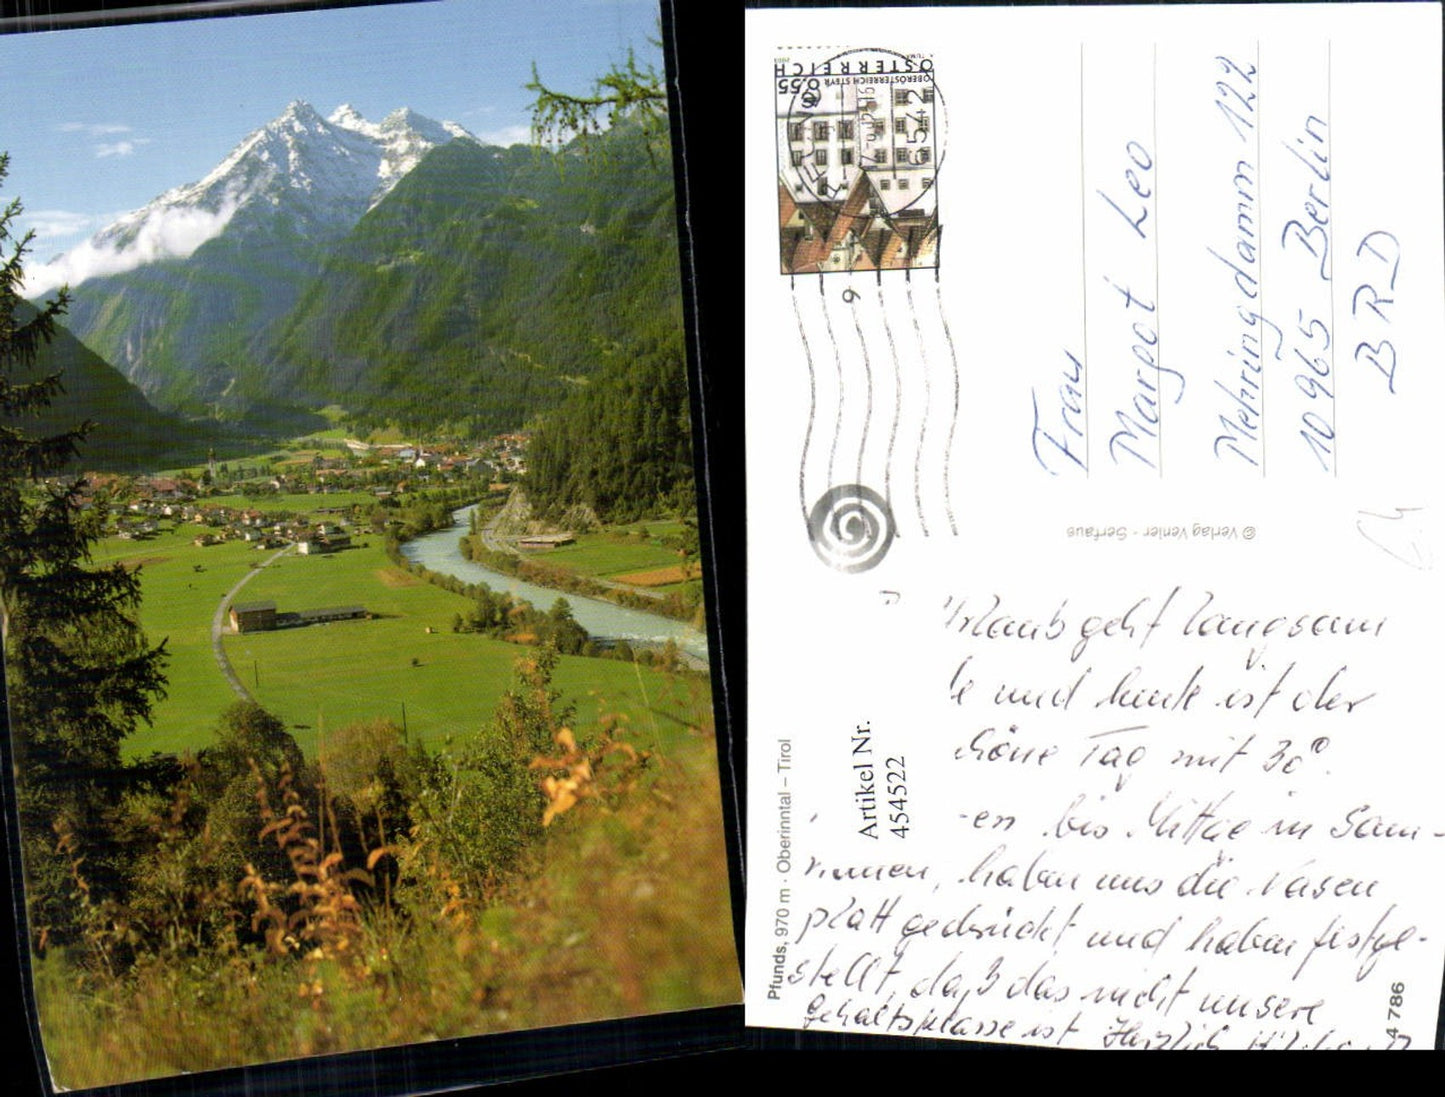 ÖSTERREICH
0.55
OBERÖSTERREICH STEYR
6542
Frau
Margot Leo
Mehringdamm 122
10965 Berlin
BRD
© Verlag Venier - Serfaus
Urlaub geht langsam
und heute ist der
schöne Tag mit 30°.
en bis Mittag in Sam-
haben uns die Nasen
platt gedrückt und haben festge-
stellt, daß das nicht unsere
Gehaltsklasse ist Herzlich
Pfunds, 970 m · Oberinntal – Tirol
Artikel Nr.
454522
A 786